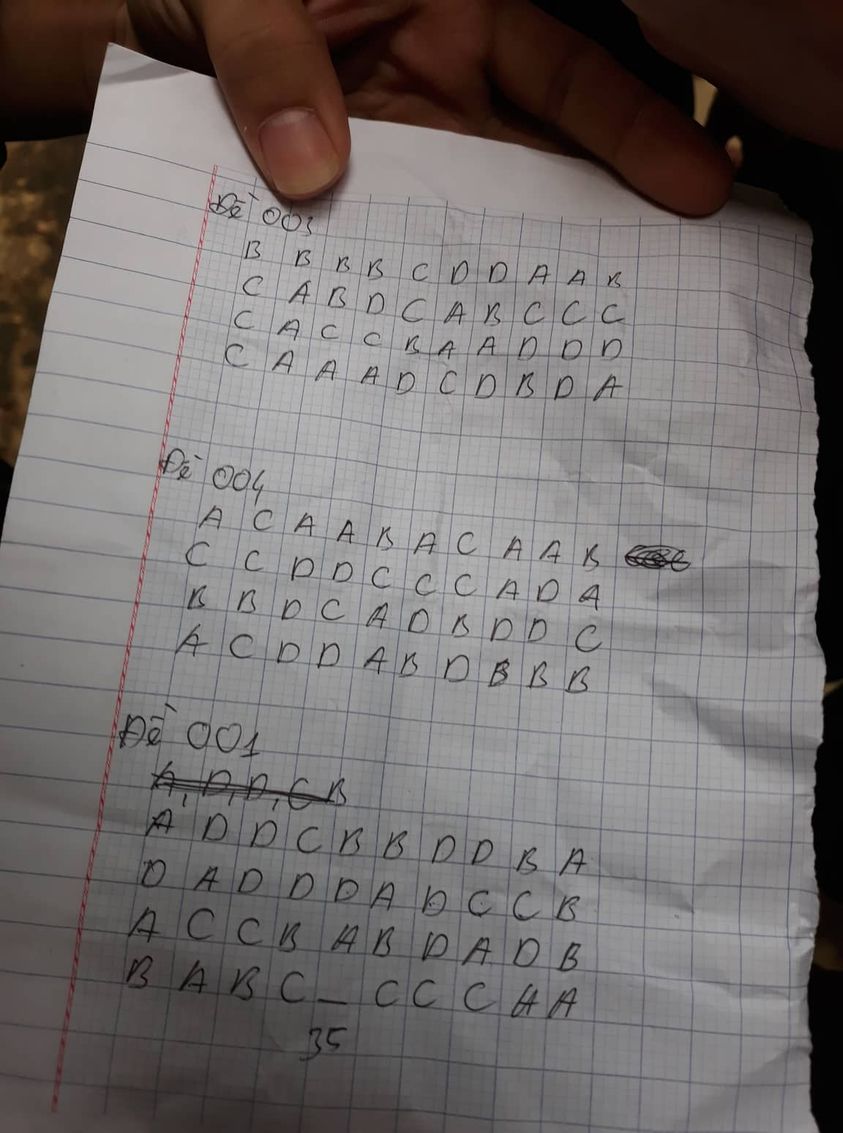 Đề 003
B B B B C D D A A B
C A B D C A B C C C
C A C C B A A D D D
C A A A D C D B D A
Đề 004
A C A A B A C A A B
C C D D C C C A D A
B B D C A D B D D C
A C D D A B D B B B
Đề 001
A, D, D, C B
A D D C B B D D B A
D A D D D A D C C B
A C C B A B D A D B
B A B C _ C C C A A
35